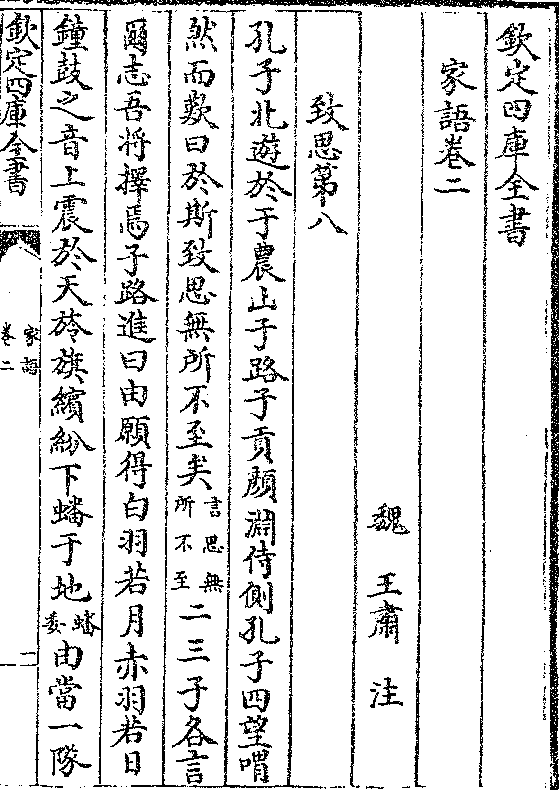 欽定四庫全書
家語卷二
魏 王肅 注
致思第八
孔子北遊於于農山子路子貢顔淵侍側孔子四望喟
然而歎曰於斯致思無所不至矣言思無所不至二三子各言
爾志吾將擇焉子路進曰由願得白羽若月赤羽若日
鐘鼓之音上震於天旍旗繽紛下蟠于地蟠委由當一隊
欽定四庫全書
家語
卷二
一